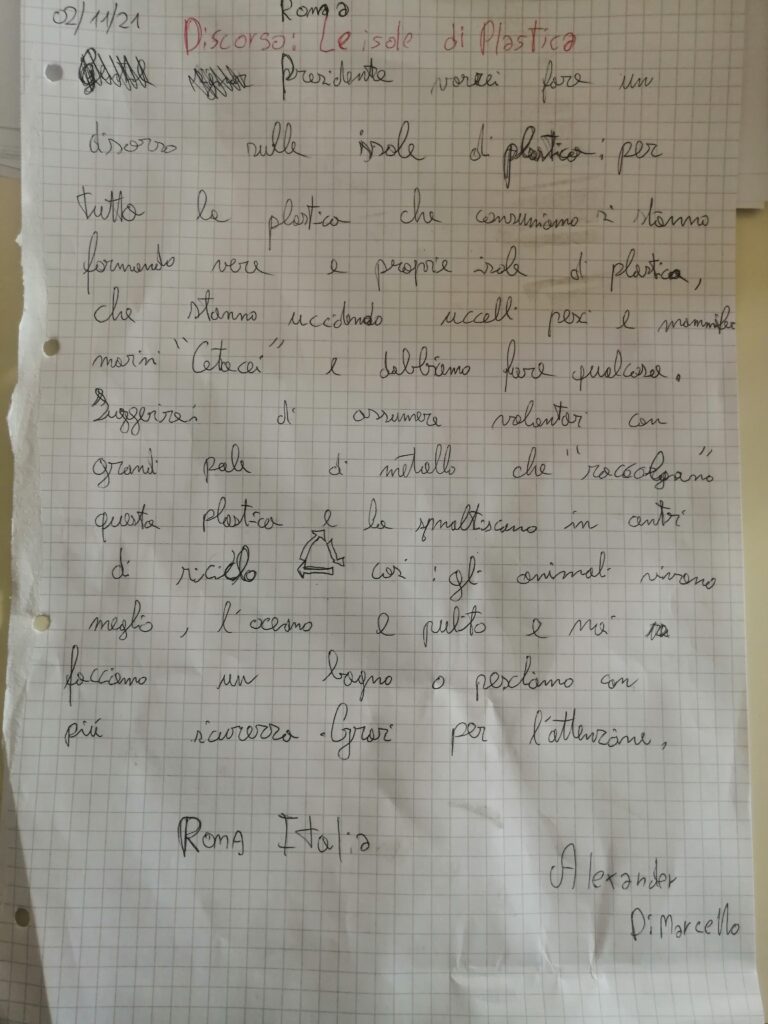 02/11/21 Roma
Discorso: Le isole di Plastica
Presidente vorrei fare un
disorso sulle isole di plastica: per
tutta la plastica che consuniamo si stanno
formando vere e proprie isole di plastica,
che stanno uccidendo uccelli pesi e mammiferi
marini "Cetacei" e dobbiamo fare qualcosa.
Suggerirei di assumere volontari con
grandi pale di metallo che "raccolgano"
questa plastica e la smaltiscano in centri
di riciclo così: gli animali vivono
meglio, l'oceano e pulito e noi
facciamo un bagno o peschiamo con
più sicurezza. Grazi per l'attenzione.
Roma Italia
Alexander
Di Marcello